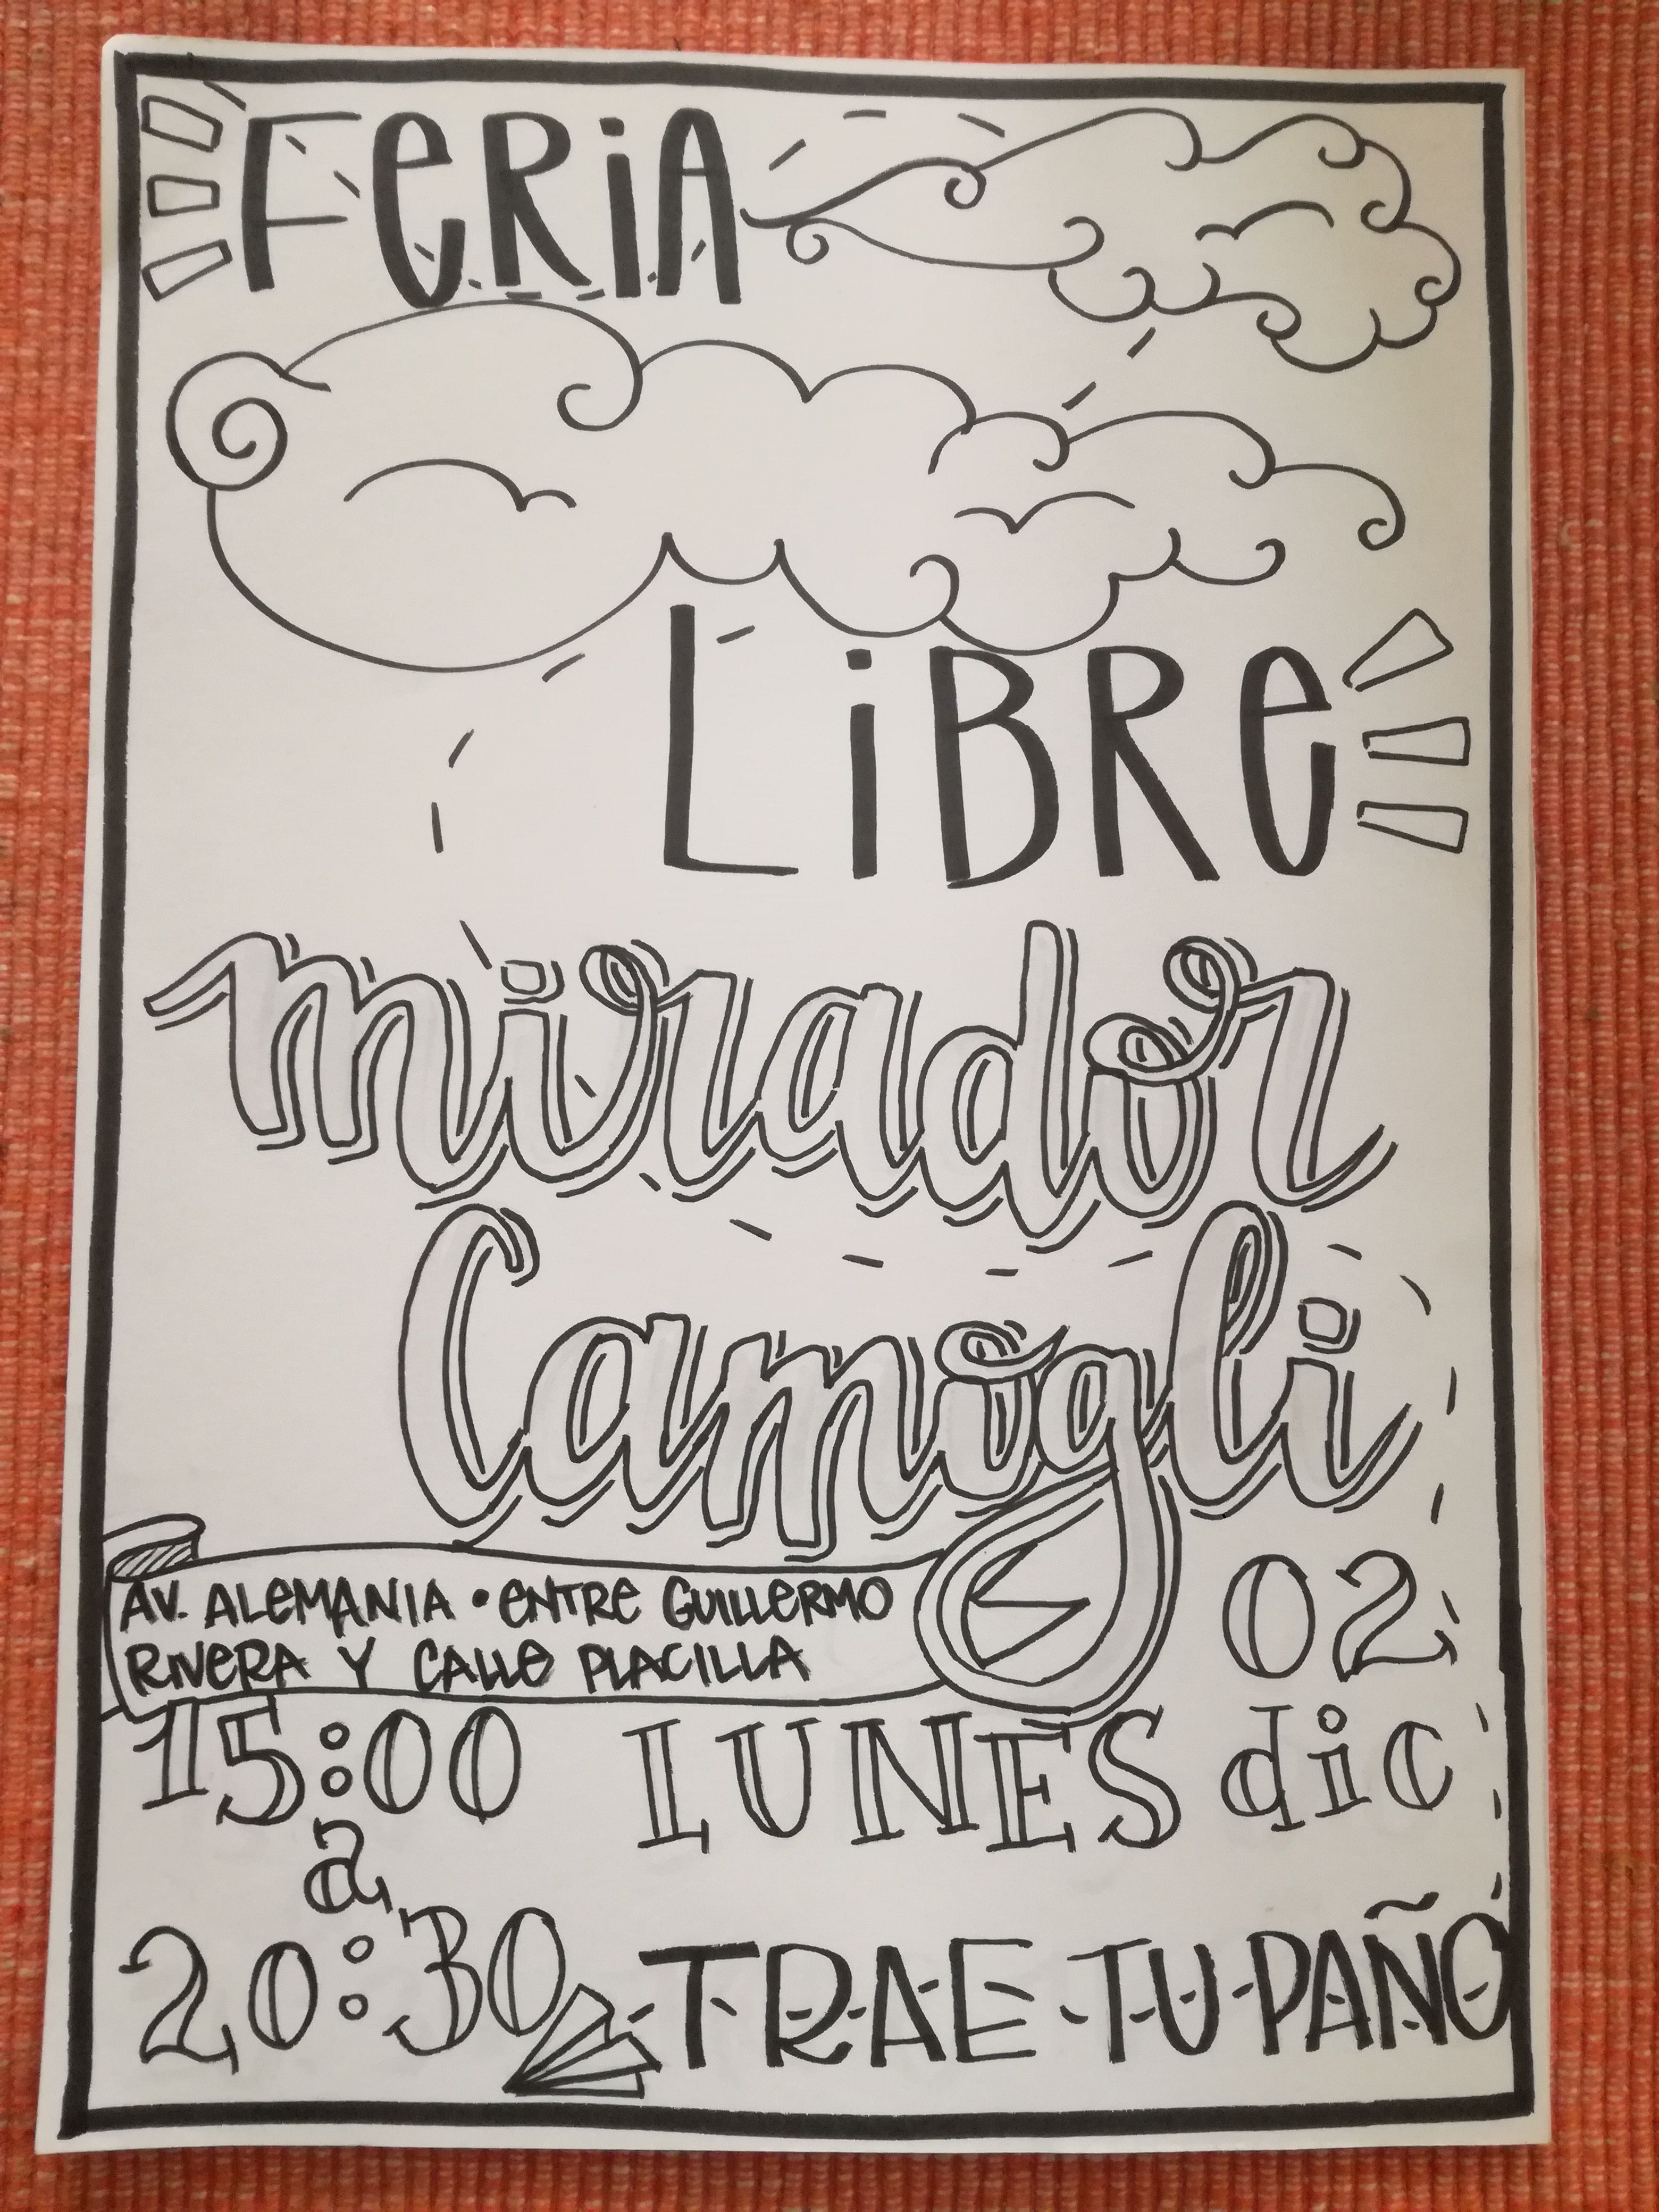 FeRiA
LiBRe
mirador
Camogli
AV. ALEMANIA • ENTRE GUILLERMO
RIVERA Y CALLE PLACILLA
02
15:00 LUNES dic
a
20:30 TRAE TU PAÑO